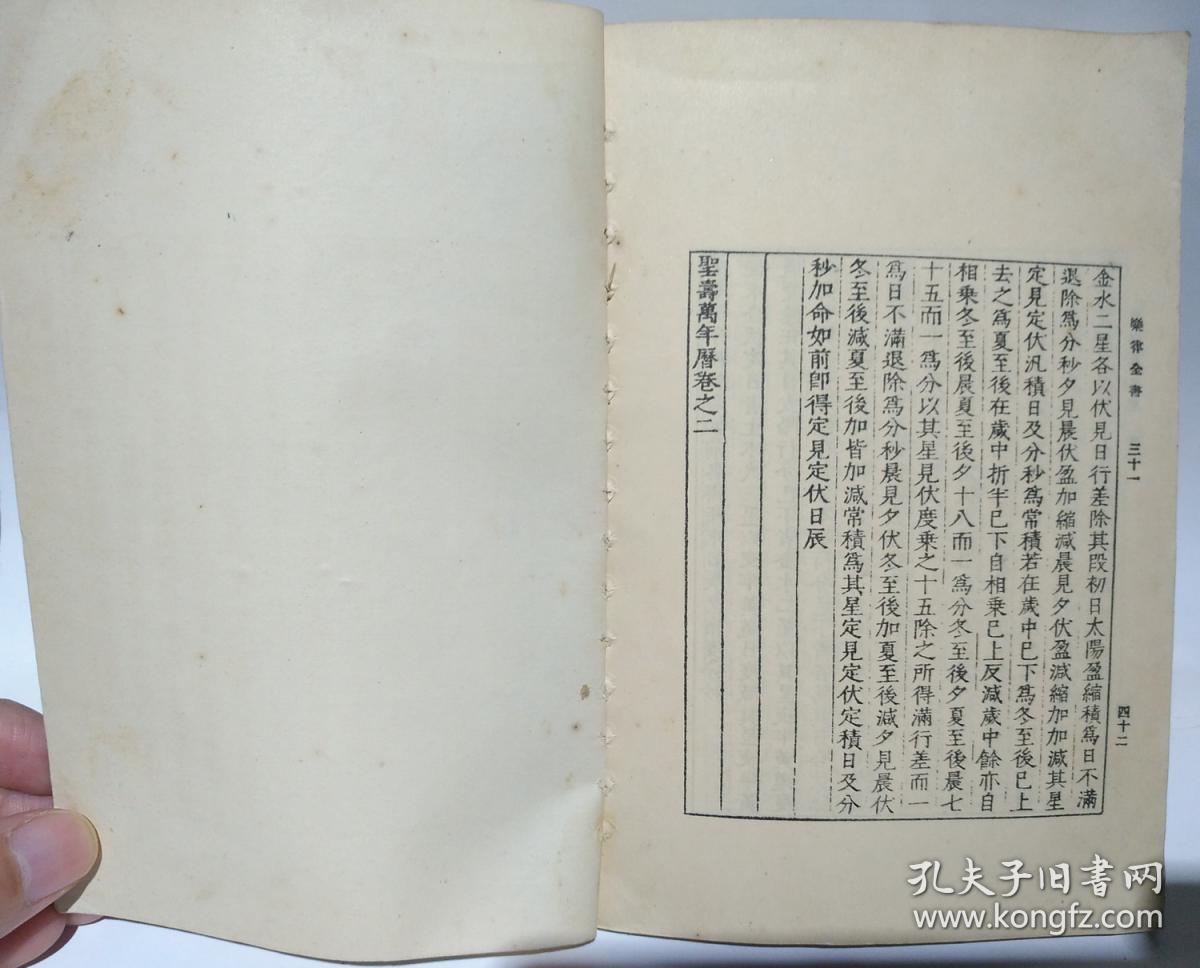 樂律全書 三十一 四十二
金水二星各以伏見日行差除其段初日太陽盈縮積爲日不滿
退除爲分秒夕見晨伏盈加縮減晨見夕伏盈減縮加加減其星
定見定伏汎積日及分秒爲常積若在歲中已下爲冬至後已上
去之爲夏至後在歲中折半已下自相乘已上反減歲中餘亦自
相乘冬至後晨夏至後夕十八而一爲分冬至後夕夏至後晨七
十五而一爲分以其星見伏度乘之十五除之所得滿行差而一
爲日不滿退除爲分秒晨見夕伏冬至後加夏至後減夕見晨伏
冬至後減夏至後加皆加減常積爲其星定見定伏定積日及分
秒加命如前卽得定見定伏日辰
聖壽萬年曆卷之二
孔夫子旧书网
www.kongfz.com